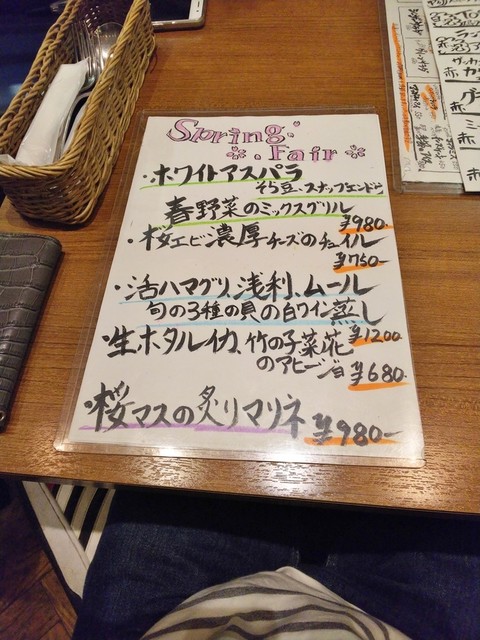 Spring
Fair
・ホワイトアスパラ
そら豆、スナップエンドウ
春野菜のミックスグリル
¥980-
・桜エビ濃厚チーズのチュイル
¥750-
・活ハマグリ、浅利、ムール
旬の3種の貝の白ワイン蒸し
¥1200
・生ホタルイカ、竹の子菜花
のアヒージョ ¥680-
・桜マスの炙りマリネ ¥980-